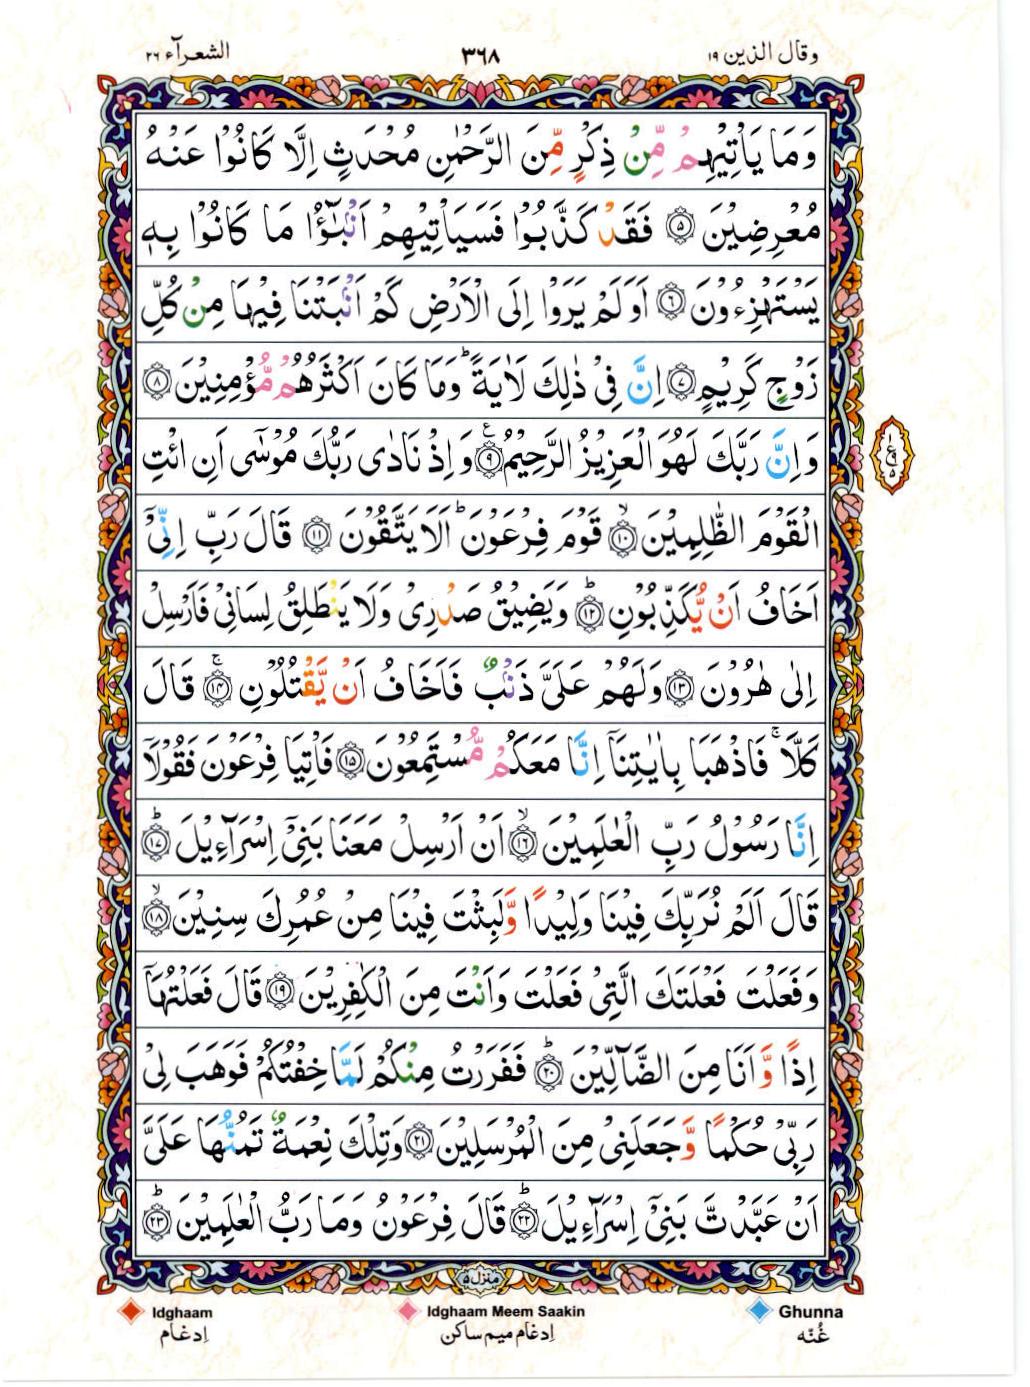 وقال الذين ١٩
٣٦٨
الشعرآء ٢٦
وَمَا يَاْتِيْهِمْ مِّنْ ذِكْرٍ مِّنَ الرَّحْمٰنِ مُحْدَثٍ اِلَّا كَانُوْا عَنْهُ
مُعْرِضِيْنَ ۝٥ فَقَدْ كَذَّبُوْا فَسَيَاْتِيْهِمْ اَنْۢبٰٓؤُا مَا كَانُوْا بِهٖ
يَسْتَهْزِءُوْنَ ۝٦ اَوَلَمْ يَرَوْا اِلَى الْاَرْضِ كَمْ اَنْۢبَتْنَا فِيْهَا مِنْ كُلِّ
زَوْجٍ كَرِيْمٍ ۝٧ اِنَّ فِيْ ذٰلِكَ لَاٰيَةً ؕ وَمَا كَانَ اَكْثَرُهُمْ مُّؤْمِنِيْنَ ۝٨
وَاِنَّ رَبَّكَ لَهُوَ الْعَزِيْزُ الرَّحِيْمُ ۝٩ وَاِذْ نَادٰى رَبُّكَ مُوْسٰٓى اَنِ ائْتِ
الْقَوْمَ الظّٰلِمِيْنَ ۝١٠ۙ قَوْمَ فِرْعَوْنَ ؕ اَلَا يَتَّقُوْنَ ۝١١ قَالَ رَبِّ اِنِّيْٓ
اَخَافُ اَنْ يُّكَذِّبُوْنِ ۝١٢ؕ وَيَضِيْقُ صَدْرِيْ وَلَا يَنْطَلِقُ لِسَانِيْ فَاَرْسِلْ
اِلٰى هٰرُوْنَ ۝١٣ وَلَهُمْ عَلَيَّ ذَنْۢبٌ فَاَخَافُ اَنْ يَّقْتُلُوْنِ ۝١٤ۚ قَالَ
كَلَّا ۚ فَاذْهَبَا بِاٰيٰتِنَآ اِنَّا مَعَكُمْ مُّسْتَمِعُوْنَ ۝١٥ فَاْتِيَا فِرْعَوْنَ فَقُوْلَآ
اِنَّا رَسُوْلُ رَبِّ الْعٰلَمِيْنَ ۝١٦ۙ اَنْ اَرْسِلْ مَعَنَا بَنِيْٓ اِسْرَآءِيْلَ ۝١٧ؕ
قَالَ اَلَمْ نُرَبِّكَ فِيْنَا وَلِيْدًا وَّلَبِثْتَ فِيْنَا مِنْ عُمُرِكَ سِنِيْنَ ۝١٨ۙ
وَفَعَلْتَ فَعْلَتَكَ الَّتِيْ فَعَلْتَ وَاَنْتَ مِنَ الْكٰفِرِيْنَ ۝١٩ قَالَ فَعَلْتُهَآ
اِذًا وَّاَنَا مِنَ الضَّآلِّيْنَ ۝٢٠ؕ فَفَرَرْتُ مِنْكُمْ لَمَّا خِفْتُكُمْ فَوَهَبَ لِيْ
رَبِّيْ حُكْمًا وَّجَعَلَنِيْ مِنَ الْمُرْسَلِيْنَ ۝٢١ وَتِلْكَ نِعْمَةٌ تَمُنُّهَا عَلَيَّ
اَنْ عَبَّدْتَّ بَنِيْٓ اِسْرَآءِيْلَ ۝٢٢ؕ قَالَ فِرْعَوْنُ وَمَا رَبُّ الْعٰلَمِيْنَ ۝٢٣ؕ
منزل ٥
Idghaam
Idghaam Meem Saakin
Ghunna
اِدغَام
اِدغَام میم ساکن
غُنّه